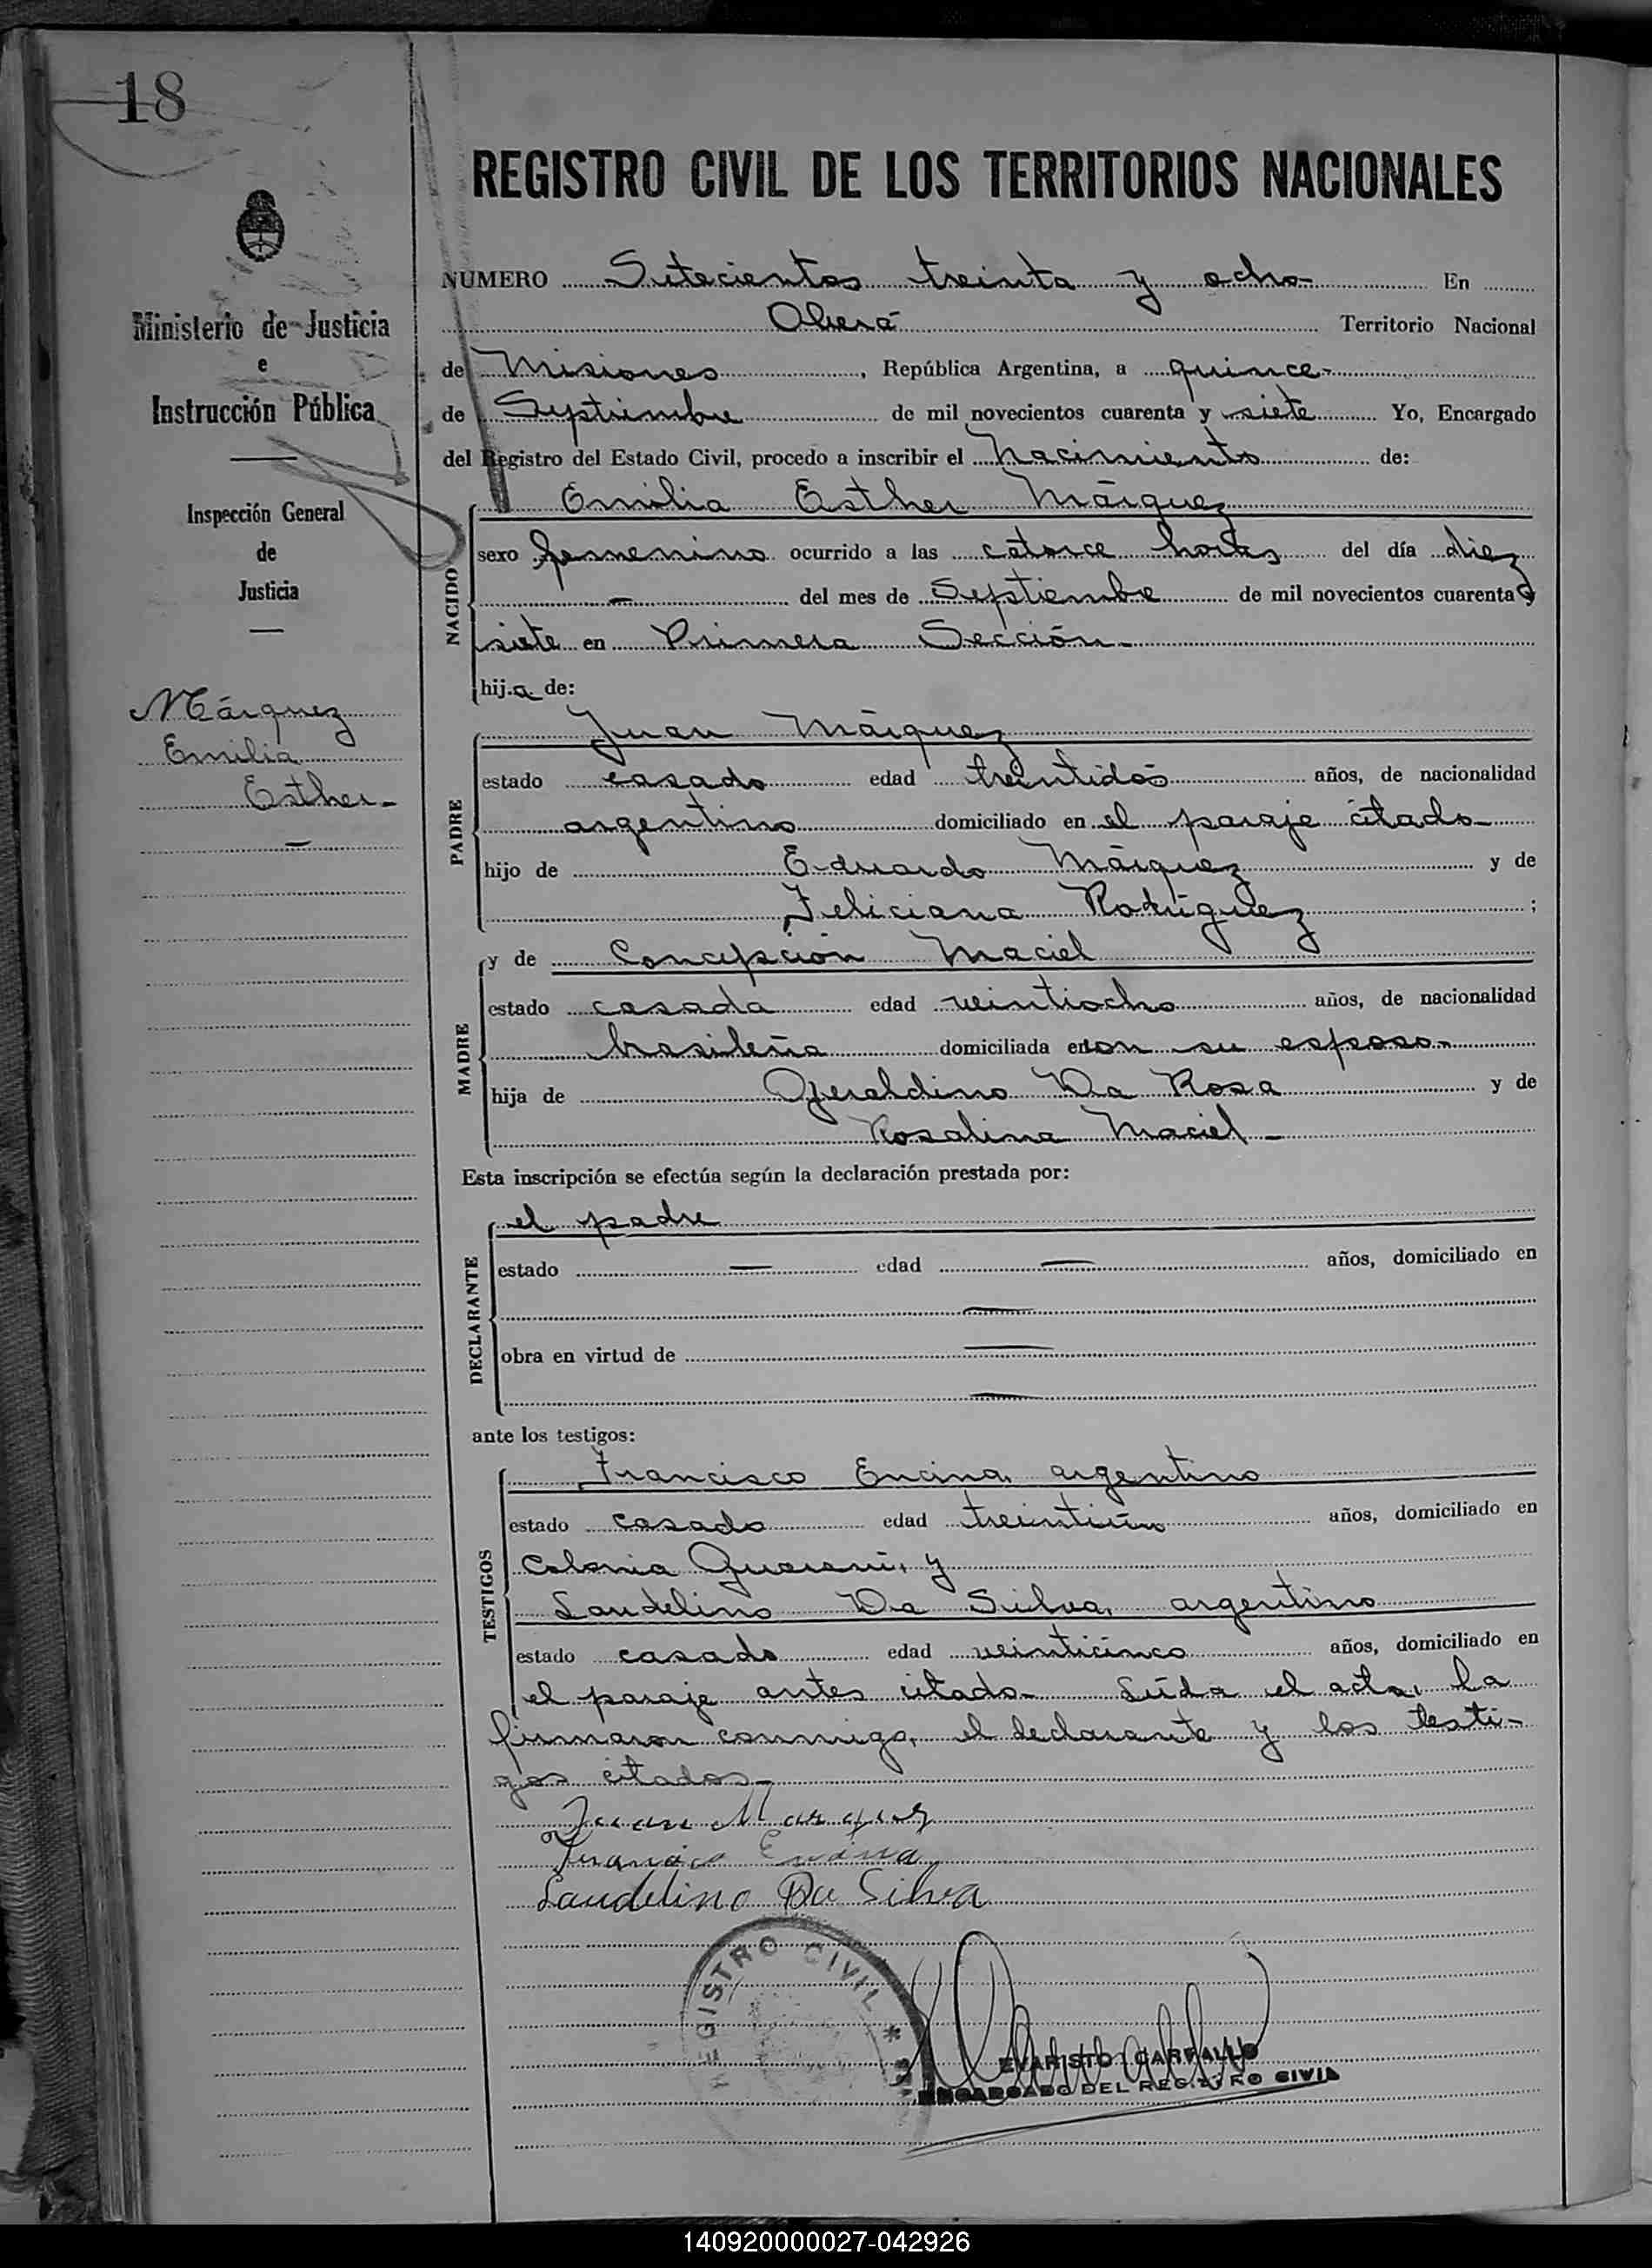 18
REGISTRO CIVIL DE LOS TERRITORIOS NACIONALES
Ministerio de Justicia
e
Instrucción Pública
Inspección General
de
Justicia
Márquez
Emilia
Esther-
NUMERO Setecientos treinta y ocho- En
Oberá Territorio Nacional
de Misiones, República Argentina, a quince-
de Septiembre de mil novecientos cuarenta y siete Yo, Encargado
del Registro del Estado Civil, procedo a inscribir el Nacimiento de:
NACIDO
Emilia Esther Márquez
sexo femenino ocurrido a las catorce horas del día diez
- del mes de Septiembre de mil novecientos cuarenta y
siete en Primera Sección-
hija de:
PADRE
Juan Márquez
estado casado edad treintidós años, de nacionalidad
argentino domiciliado en el paraje citado-
hijo de Eduardo Márquez y de
Feliciana Rodríguez;
MADRE
y de Concepción Maciel
estado casada edad veintiocho años, de nacionalidad
brasileña domiciliada con su esposo-
hija de Geraldino Da Rosa y de
Rosalina Maciel-
Esta inscripción se efectúa según la declaración prestada por:
DECLARANTE
el padre
estado — edad — años, domiciliado en
—
obra en virtud de —
—
ante los testigos:
TESTIGOS
Francisco Encina, argentino
estado casado edad treintiún años, domiciliado en
Colonia Guaraní, y
Laudelino Da Silva, argentino
estado casado edad veinticinco años, domiciliado en
el paraje antes citado- Leída el acta, la
firmaron conmigo, el declarante y los testi-
gos citados-
Juan Marquez
Francisco Encina
Laudelino Da Silva
REGISTRO CIVIL *
EVARISTO CARBALLO
ENCARGADO DEL REGISTRO CIVIL
140920000027-042926